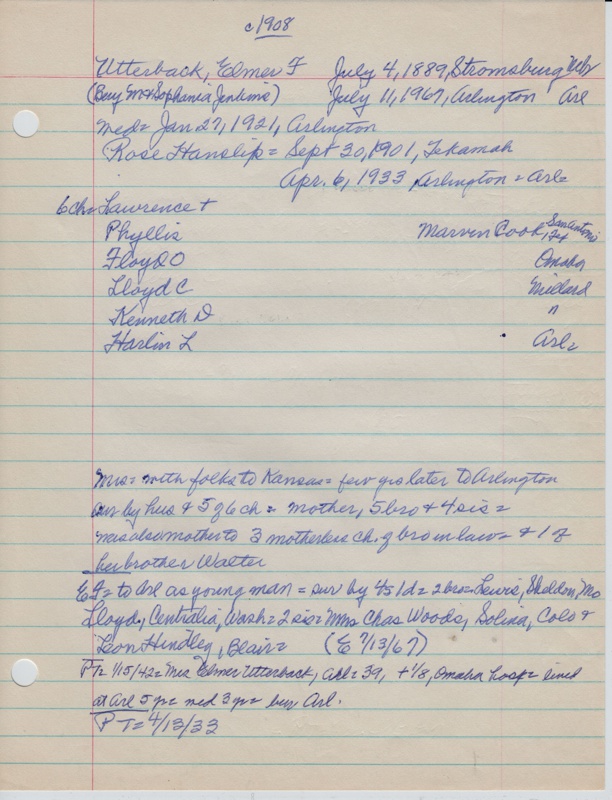 c1908
Utterback, Elmer F July 4, 1889, Stromsburg Nebr
(Benj M & Sophania Jenkins) July 11, 1967, Arlington Arl
med= Jan 27, 1921, Arlington
Rose Hanslip = Sept 30, 1901, Tekamah
Apr. 6, 1933 Arlington = Arl=
6 ch= Lawrence +
Phyllis Marvin Cook San Antonio, Tex
Floyd O Omaha
Lloyd C Millard
Kenneth D "
Harlin L Arl=
Mrs= with folks to Kansas= few yrs later to Arlington
sur by hus & 5 of 6 ch = mother, 5 bro & 4 sis =
Mrs also mother to 3 motherless ch. of bro in law = & 1 of
her brother Walter
E F= to Arl as young man = sur by 4s 1d= 2 bro= Lewis, Sheldon, Mo
Lloyd, Centralia, Wash= 2 sis= Mrs Chas Woods, Solina, Colo &
Leon Hindley, Blair= (E 7/13/67)
PT= 1/15/42= Mrs Elmer Utterback, Arl= 39, + 1/8, Omaha hosp= lived
at Arl 5 yr= med 3 yr= bur Arl.
P T= 4/13/33